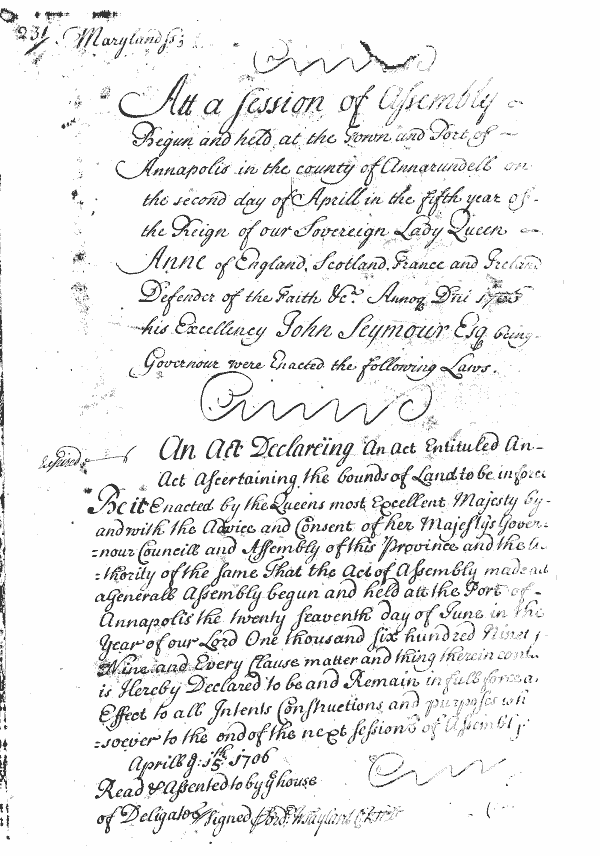 231/. Maryland ss;
Att a Session of Assembly
Begun and held at the Town and Port of
Annapolis in the county of Annarundell on
the second day of Aprill in the fifth year of
the Reign of our Sovereign Lady Queen
Anne of England, Scotland, France and Ireland
Defender of the Faith &c.ᵃ Annoq Dni
his Excellency John Seymour Esq being
Governour were Enacted the following Laws.
An Act Declareing An Act Entituled An
Act Ascertaining the bounds of Land to be in force
Be it Enacted by the Queens most Excellent Majesty by
and with the Advice and Consent of her Majestys Gover-
=nour Councill and Assembly of this Province and the
=thority of the same That the Act of Assembly made att
a Generall Assembly begun and held att the Port of
Annapolis the twenty Seaventh day of June in the
Year of our Lord One thousand six hundred Ninety
Nine and Every Clause matter and thing therein
is Hereby Declared to be and Remain in full force
Effect to all Intents Constructions and purposes
=soever to the end of the next Sessions of Assembly
Aprill y: 15:ᵗʰ 1706
Read & Assented to by yᵉ house
of Deligates Signed